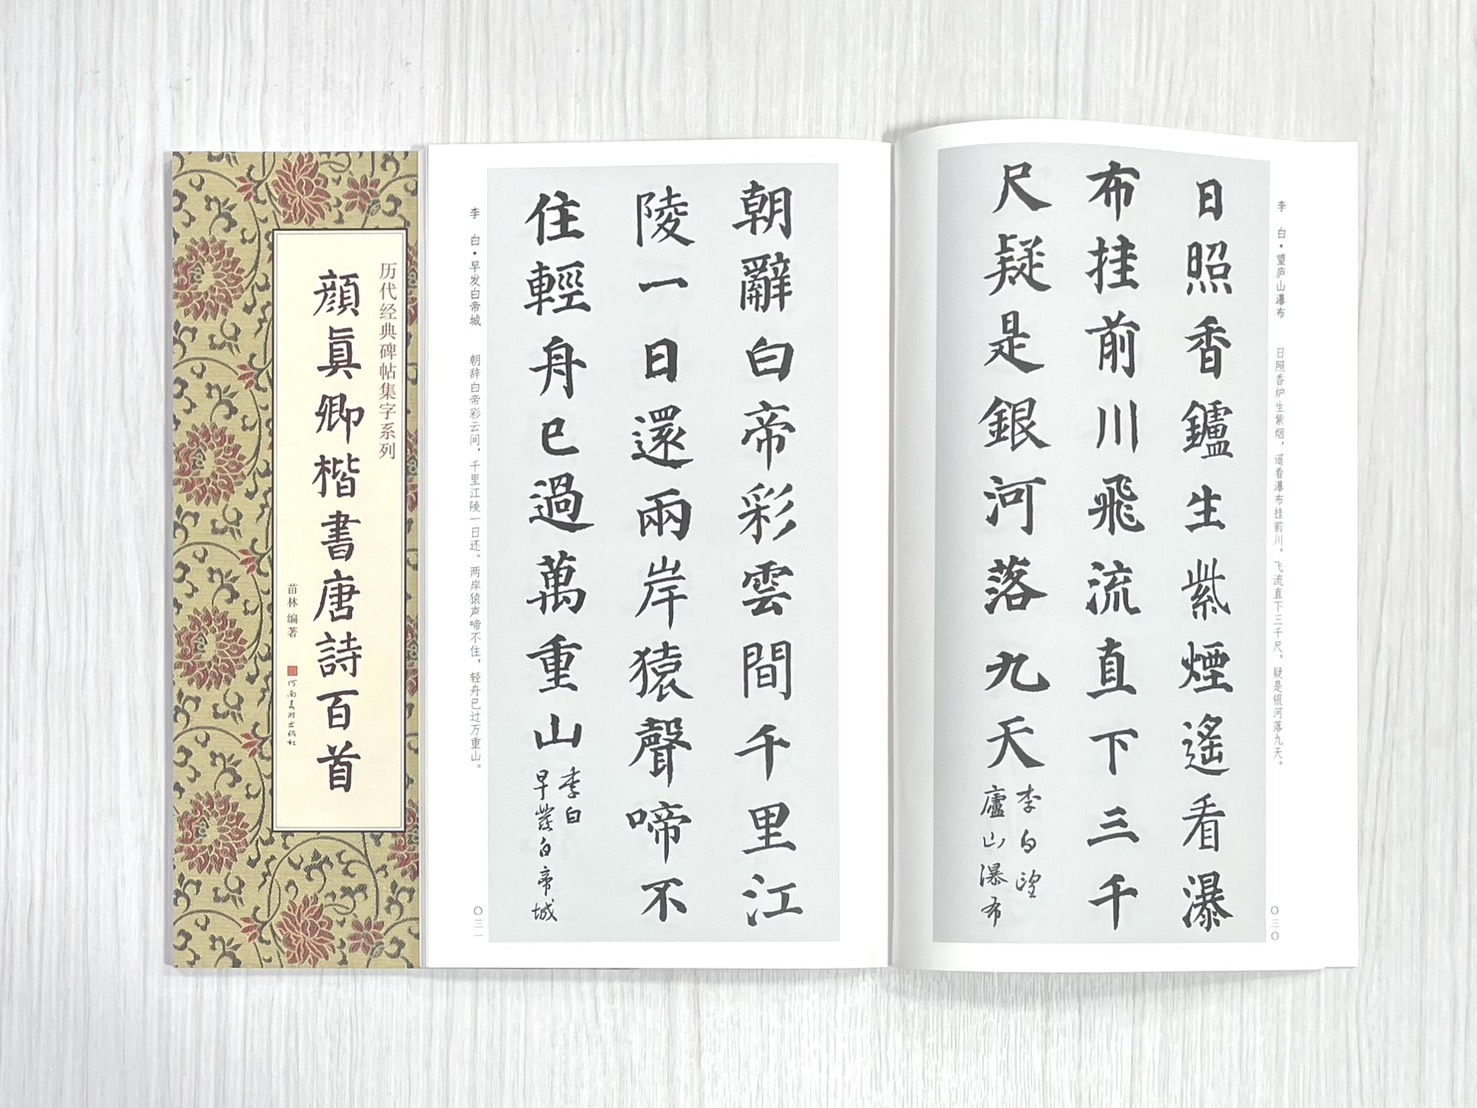 历代经典碑帖集字系列
顔眞卿楷書唐詩百首
苗林 编著
河南美术出版社
李 白·望庐山瀑布 日照香炉生紫烟，遥看瀑布挂前川。飞流直下三千尺，疑是银河落九天。
〇三〇
日照香鑪生紫煙遙看瀑
布挂前川飛流直下三千
尺疑是銀河落九天
李白望
廬山瀑布
朝辭白帝彩雲間千里江
陵一日還兩岸猿聲啼不
住輕舟已過萬重山
李白
早發白帝城
李 白·早发白帝城 朝辞白帝彩云间，千里江陵一日还。两岸猿声啼不住，轻舟已过万重山。
〇三一